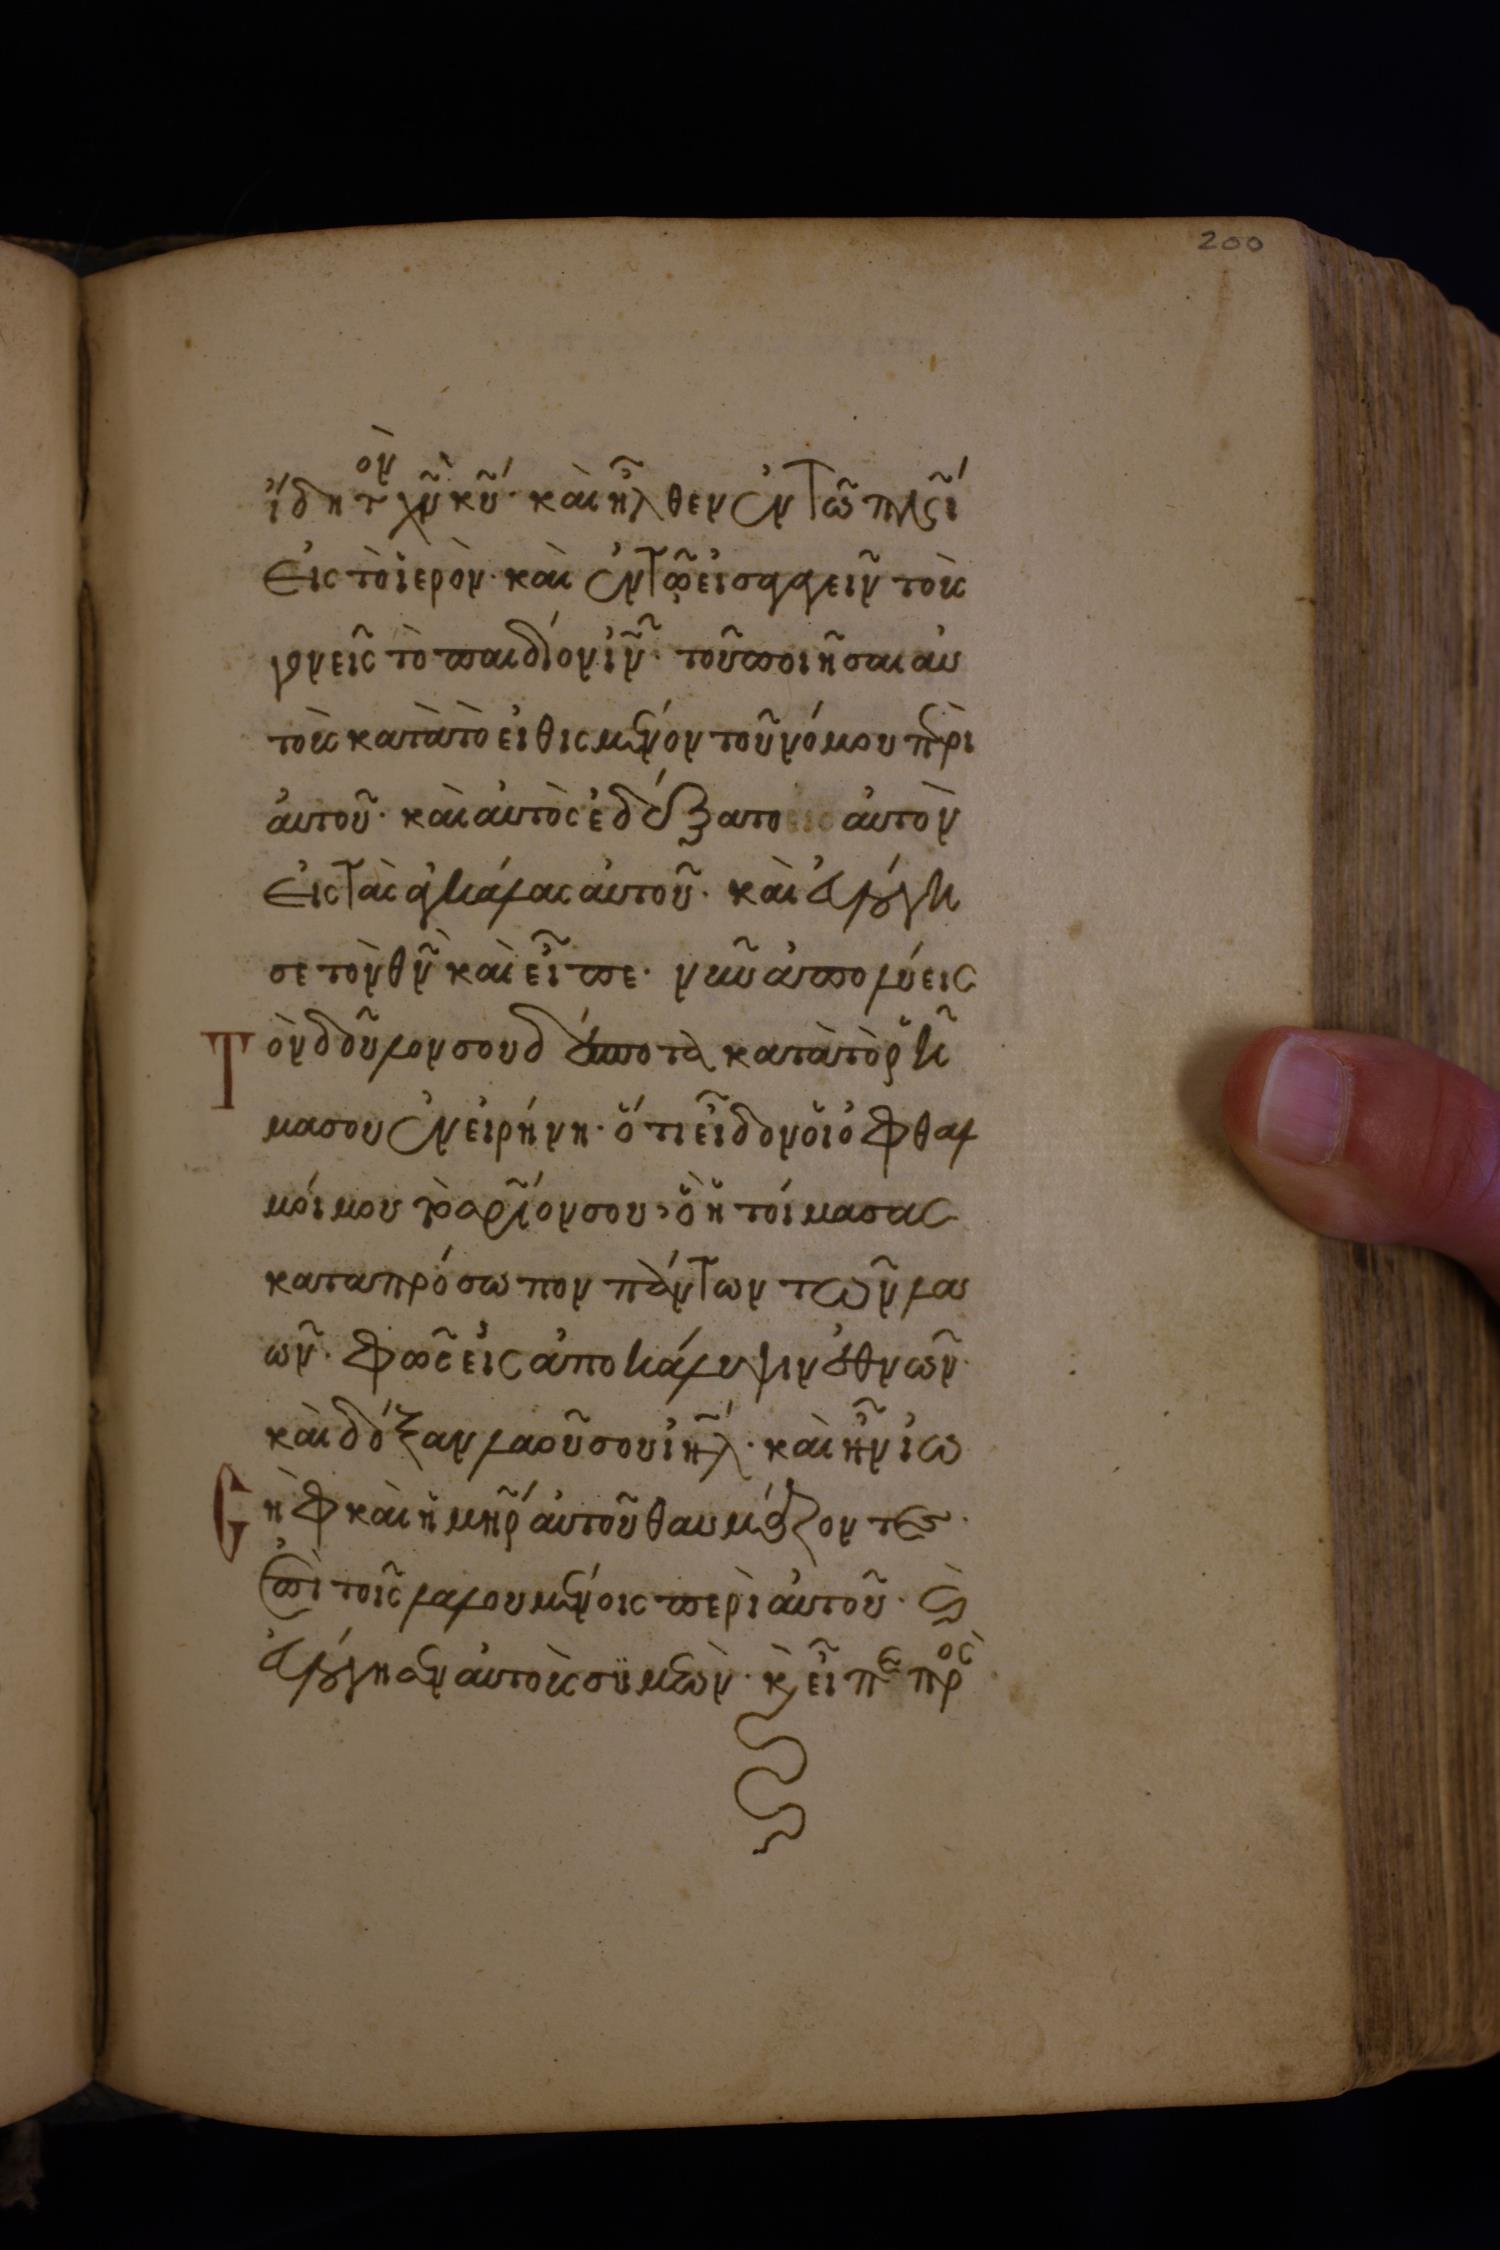 200
ἴδη τὸν χν κυ· καὶ ἦλθεν ἐν τῶ πνι
εἰς τὸ ἱερὸν· καὶ ἐν τῶ εἰσαγαγεῖν τοὺς
γονεῖς τὸ παιδίον ιν· τοῦ ποιῆσαι αυ
τοὺς κατὰ τὸ εἰθισμένον τοῦ νόμου περὶ
αὐτοῦ· καὶ αὐτὸς ἐδέξατο αὐτὸν
εἰς τὰς ἀγκάλας αὐτοῦ· καὶ εὐλόγη
σε τὸν θν καὶ εἶπε· νῦν ἀπολύεις
τὸν δοῦλον σου δέσποτα κατὰ τὸ ῥῆ
μα σου ἐν εἰρήνη· ὅτι εἶδον ὁι ὀφθαλ
μοί μου τὸ σριόν σου, ὃ ἡτοίμασας
κατα πρόσωπον πάντων τῶν λα
ῶν· φῶς εἰς ἀποκάλυψιν ἐθνῶν·
καὶ δόξαν λαοῦ σου ιηλ· καὶ ἦν ἰω
σὴφ καὶ ἡ μηρ αὐτοῦ θαυμάζοντες·
ἐπὶ τοῖς λαλουμένοις περὶ αὐτοῦ· καὶ
εὐλόγησεν αὐτοὺς συμεὼν· κ εἶπε πρὸς